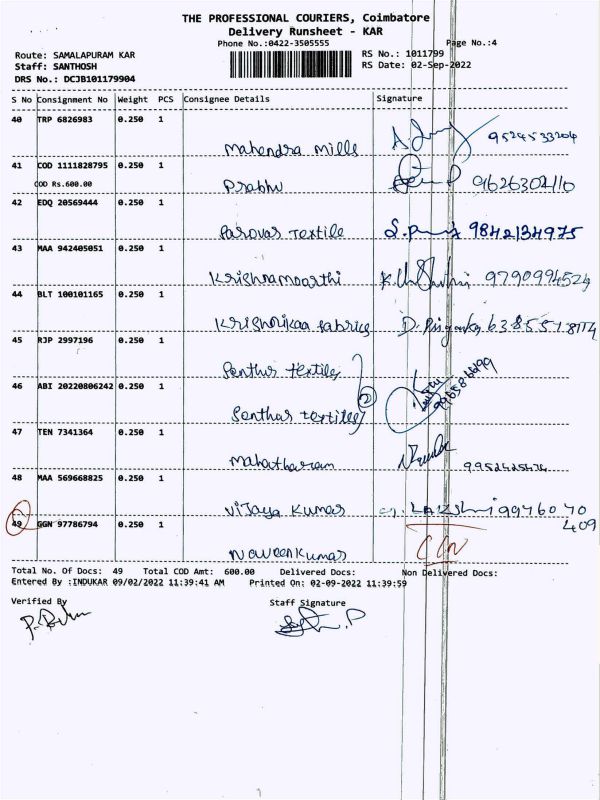 THE PROFESSIONAL COURIERS, Coimbatore
Delivery Runsheet - KAR
Phone No.:0422-3505555 Page No.:4
Route: SAMALAPURAM KAR RS No.: 1011799
Staff: SANTHOSH RS Date: 02-Sep-2022
DRS No.: DCJB101179904
S No Consignment No Weight PCS Consignee Details Signature
40 TRP 6826983 0.250 1
Mahendra Mills 9524533204
41 COD 1111828795 0.250 1
COD Rs.600.00 Prabhu 9626302110
42 EDQ 20569444 0.250 1
Parovar Textile 9842134975
43 MAA 942405051 0.250 1
Krishnamoorthi 9790994524
44 BLT 100101165 0.250 1
Krishnikaa fabrics D. Priyanka
45 RJP 2997196 0.250 1
Senthur textiles
46 ABI 20220806242 0.250 1
Senthur textiles 2
47 TEN 7341364 0.250 1
Mahatharam
48 MAA 569668825 0.250 1
Vijaya Kumar Lakshmi 9976070
409
49 GGN 97786794 0.250 1
Naveenkumar
Total No. Of Docs: 49 Total COD Amt: 600.00 Delivered Docs: Non Delivered Docs:
Entered By :INDUKAR 09/02/2022 11:39:41 AM Printed On: 02-09-2022 11:39:59
Verified By Staff Signature